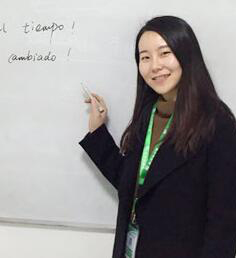 el tiempo!
cambiado!